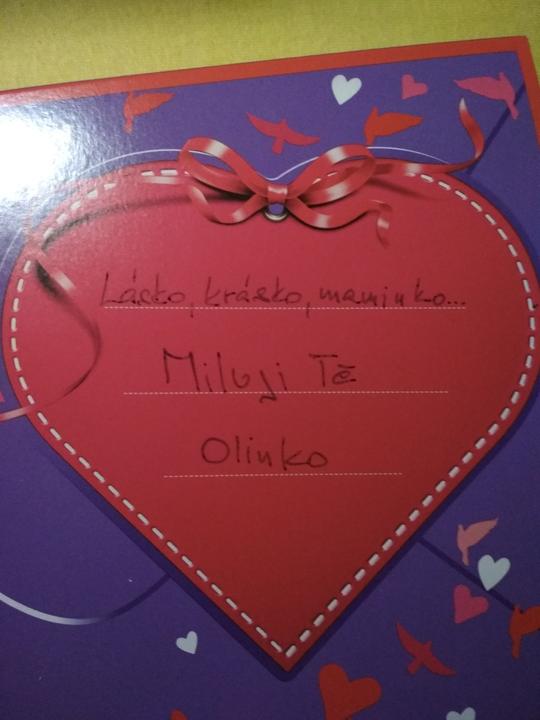 Lásko, krásko, maminko...
Miluji Tě
Olinko